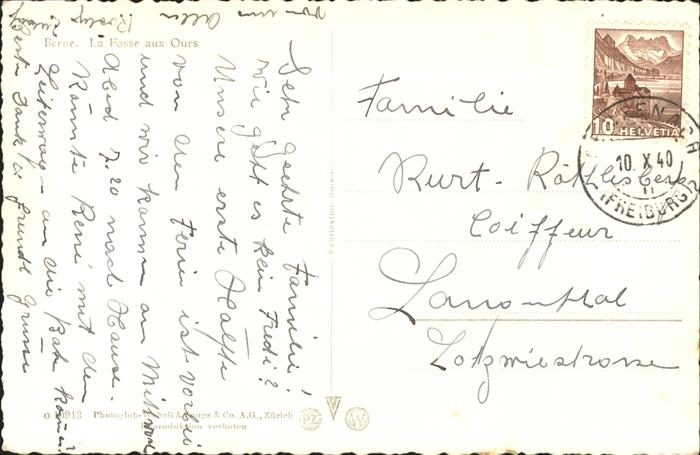 Berne. La Fosse aux Ours
Sehr geehrte Familie!
Wie geht es beim Fredi?
Unsere erste Hälfte
von den Ferien ist vorbei
und wir kommen am Mittwoch
Abend 7.20 nach Hause.
Könnte René mit dem
Leiterwag - an die Bahn kommen
Besten Dank & freundl Grüsse
von uns Allen
Familie
Kurt-Röthlisberger
Coiffeur
Langenthal
Lotzwilstrasse
10
HELVETIA
10. X 40
(FREIBURG)
Fabrication Suisse
Photoglob-Wehrli & Vouga & Co. A.G., Zürich
Reproduktion verboten
PZ
W